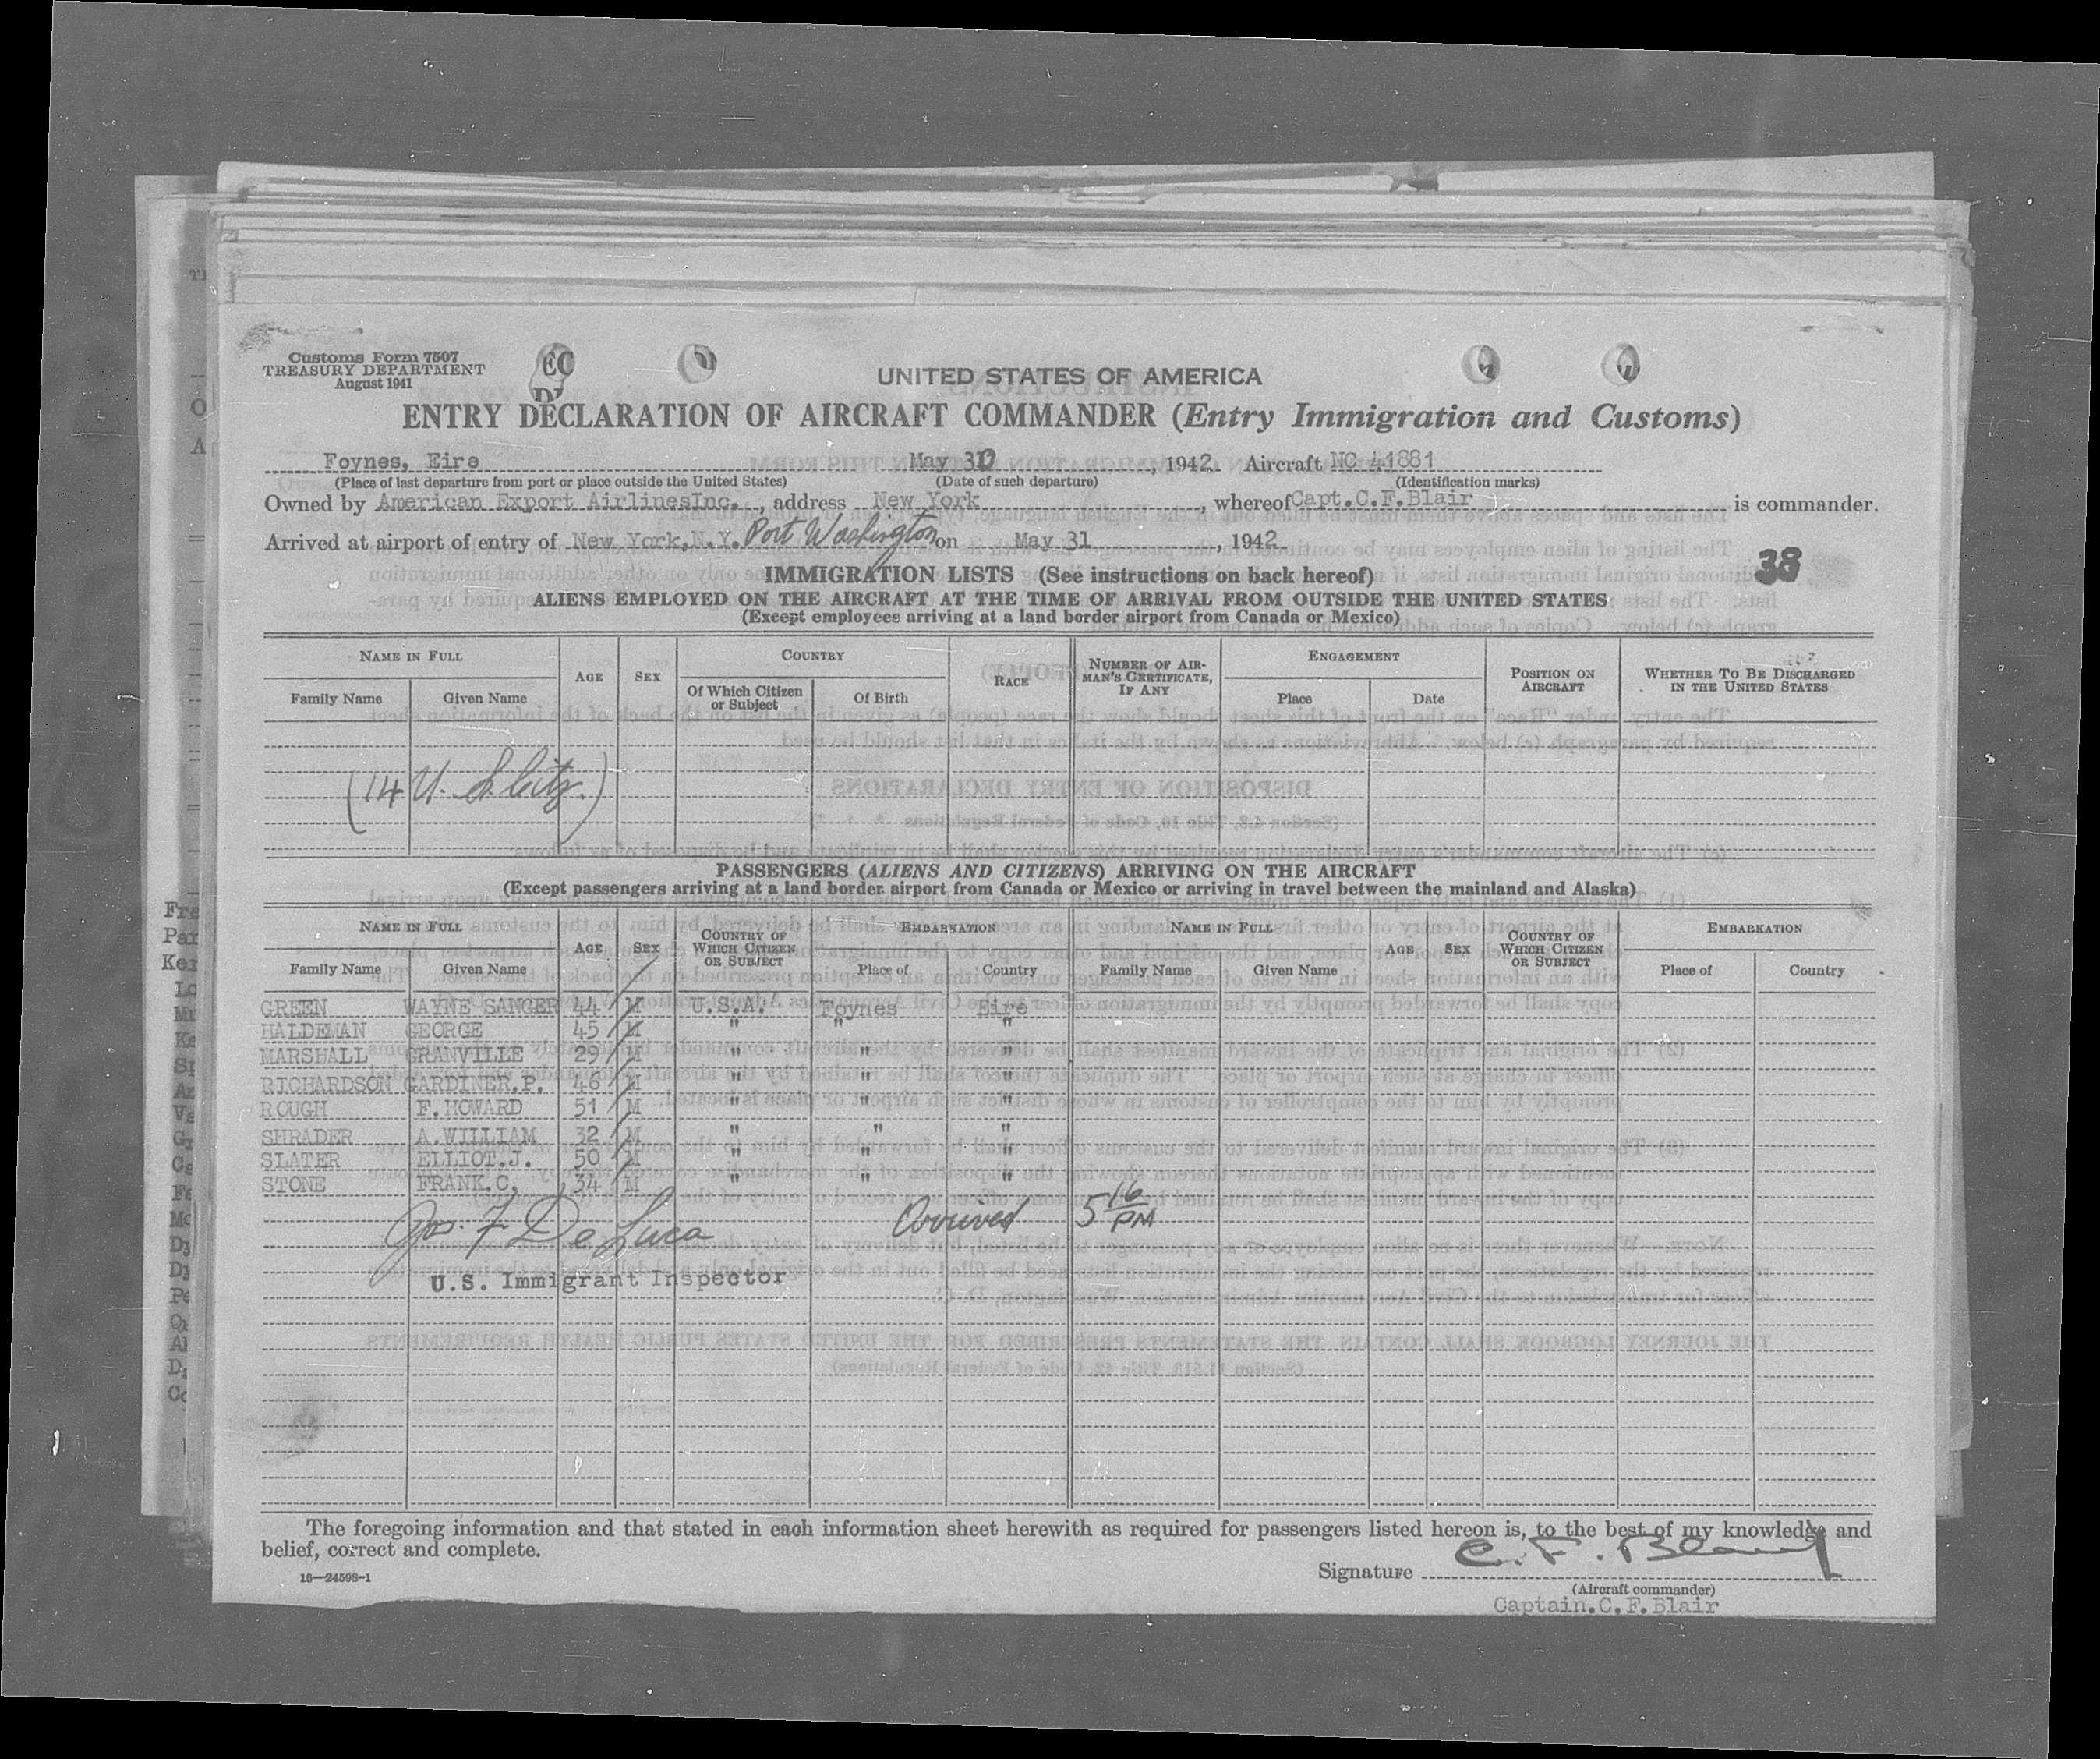 Customs Form 7507
TREASURY DEPARTMENT
August 1941
UNITED STATES OF AMERICA
ENTRY DECLARATION OF AIRCRAFT COMMANDER (Entry Immigration and Customs)
Foynes, Eire May 30, 1942 Aircraft NC 41881
(Place of last departure from port or place outside the United States) (Date of such departure) (Identification marks)
Owned by American Export AirlinesInc., address New York, whereof Capt.C.F.Blair is commander.
Arrived at airport of entry of New York,N.Y. Port Washington on May 31, 1942
38
IMMIGRATION LISTS (See instructions on back hereof)
ALIENS EMPLOYED ON THE AIRCRAFT AT THE TIME OF ARRIVAL FROM OUTSIDE THE UNITED STATES
(Except employees arriving at a land border airport from Canada or Mexico)
NAME IN FULL AGE SEX COUNTRY RACE NUMBER OF AIRMAN'S CERTIFICATE, IF ANY ENGAGEMENT POSITION ON AIRCRAFT WHETHER TO BE DISCHARGED IN THE UNITED STATES
Family Name Given Name Of Which Citizen or Subject Of Birth Place Date
(14 U. S. Citz.)
PASSENGERS (ALIENS AND CITIZENS) ARRIVING ON THE AIRCRAFT
(Except passengers arriving at a land border airport from Canada or Mexico or arriving in travel between the mainland and Alaska)
NAME IN FULL AGE SEX COUNTRY OF WHICH CITIZEN OR SUBJECT EMBARKATION NAME IN FULL AGE SEX COUNTRY OF WHICH CITIZEN OR SUBJECT EMBARKATION
Family Name Given Name Place of Country Family Name Given Name Place of Country
GREEN WAYNE SANGER 44 M U.S.A. Foynes Eire
HALDEMAN GEORGE 45 M " " "
MARSHALL GRANVILLE 29 M " " "
RICHARDSON GARDINER.P. 46 M " " "
ROUGH F.HOWARD 51 M " " "
SHRADER A.WILLIAM 32 M " " "
SLATER ELLIOT.J. 50 M " " "
STONE FRANK.C. 34 M " " "
Jos. F De Luca Arrived 5 16 PM
U.S. Immigrant Inspector
The foregoing information and that stated in each information sheet herewith as required for passengers listed hereon is, to the best of my knowledge and
belief, correct and complete.
16—24598-1
Signature C. F. Blair
(Aircraft commander)
Captain.C.F.Blair